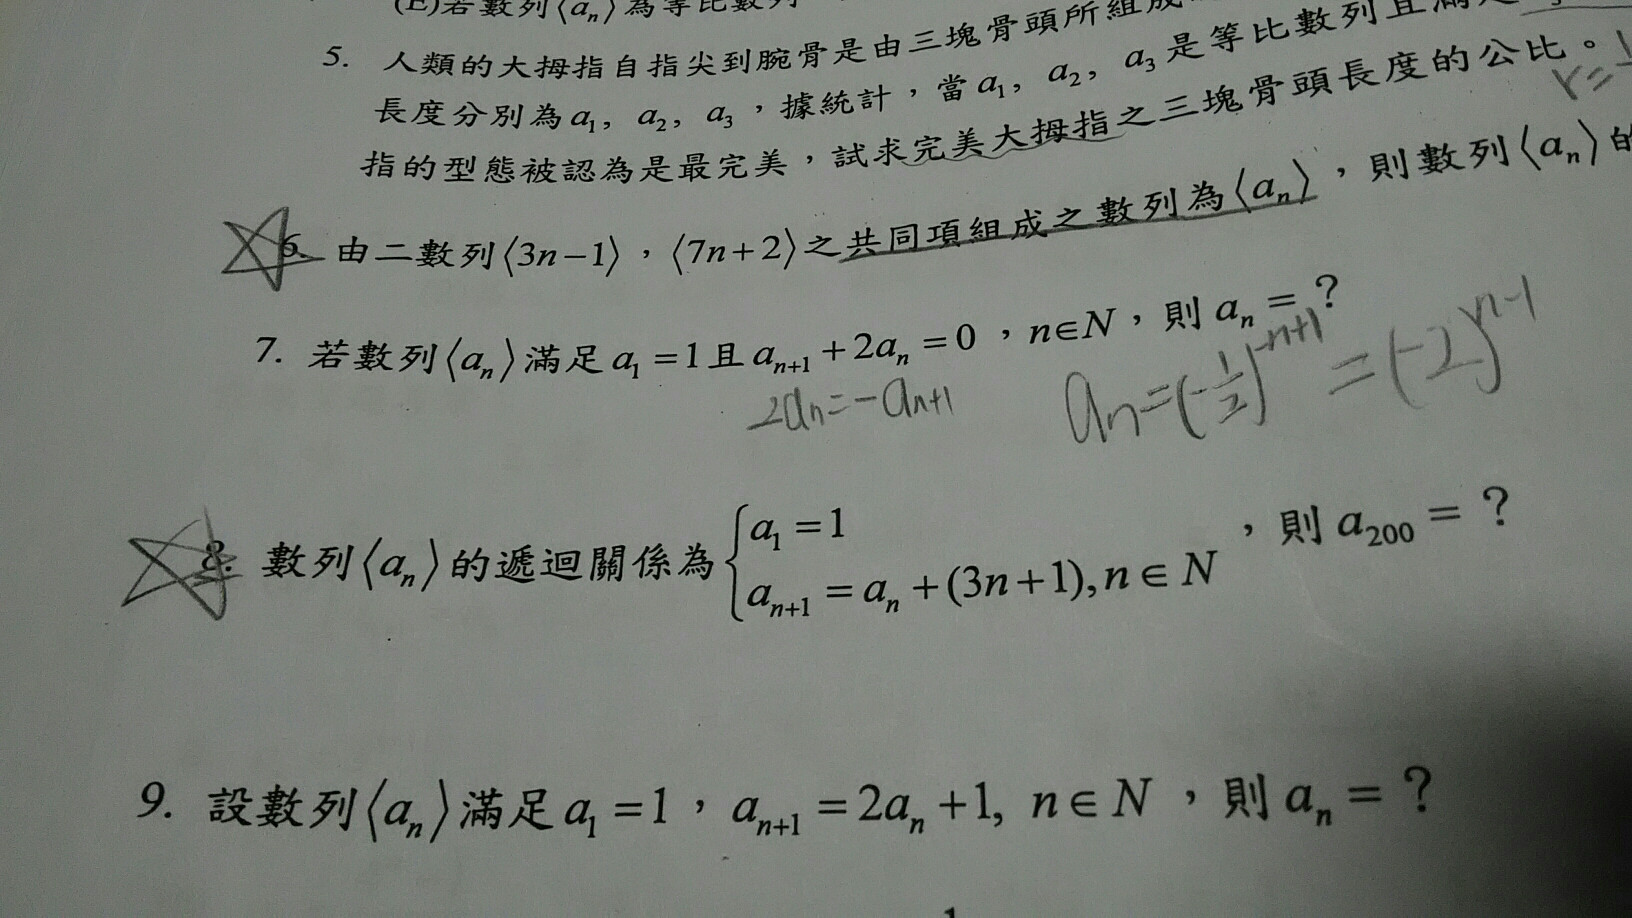 (E)若數列⟨aₙ⟩為等比數列
5. 人類的大拇指自指尖到腕骨是由三塊骨頭所組成
長度分別為a₁, a₂, a₃,據統計,當a₁, a₂, a₃是等比數列且滿足
指的型態被認為是最完美,試求完美大拇指之三塊骨頭長度的公比。 r=
6. 由二數列⟨3n−1⟩,⟨7n+2⟩之共同項組成之數列為⟨aₙ⟩,則數列⟨aₙ⟩的
7. 若數列⟨aₙ⟩滿足a₁=1且aₙ₊₁+2aₙ=0,n∈N,則aₙ=?
2aₙ=−aₙ₊₁
aₙ=(−1/2)^(−n+1)=(−2)^(n−1)
8. 數列⟨aₙ⟩的遞迴關係為{a₁=1
aₙ₊₁=aₙ+(3n+1),n∈N,則a₂₀₀=?
9. 設數列⟨aₙ⟩滿足a₁=1,aₙ₊₁=2aₙ+1, n∈N,則aₙ=?